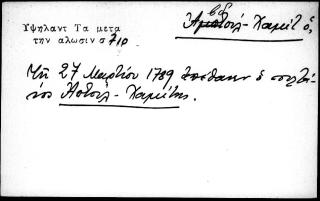 Υψηλαντ Τα μετα
την αλωσιν σ 710
Χαμίτ ὁ,
Τῇ 27 Μαρτίου 1789 ἀπέθανεν ὁ σουλτᾶ-
νος Ἀβδούλ - Χαμίτης.